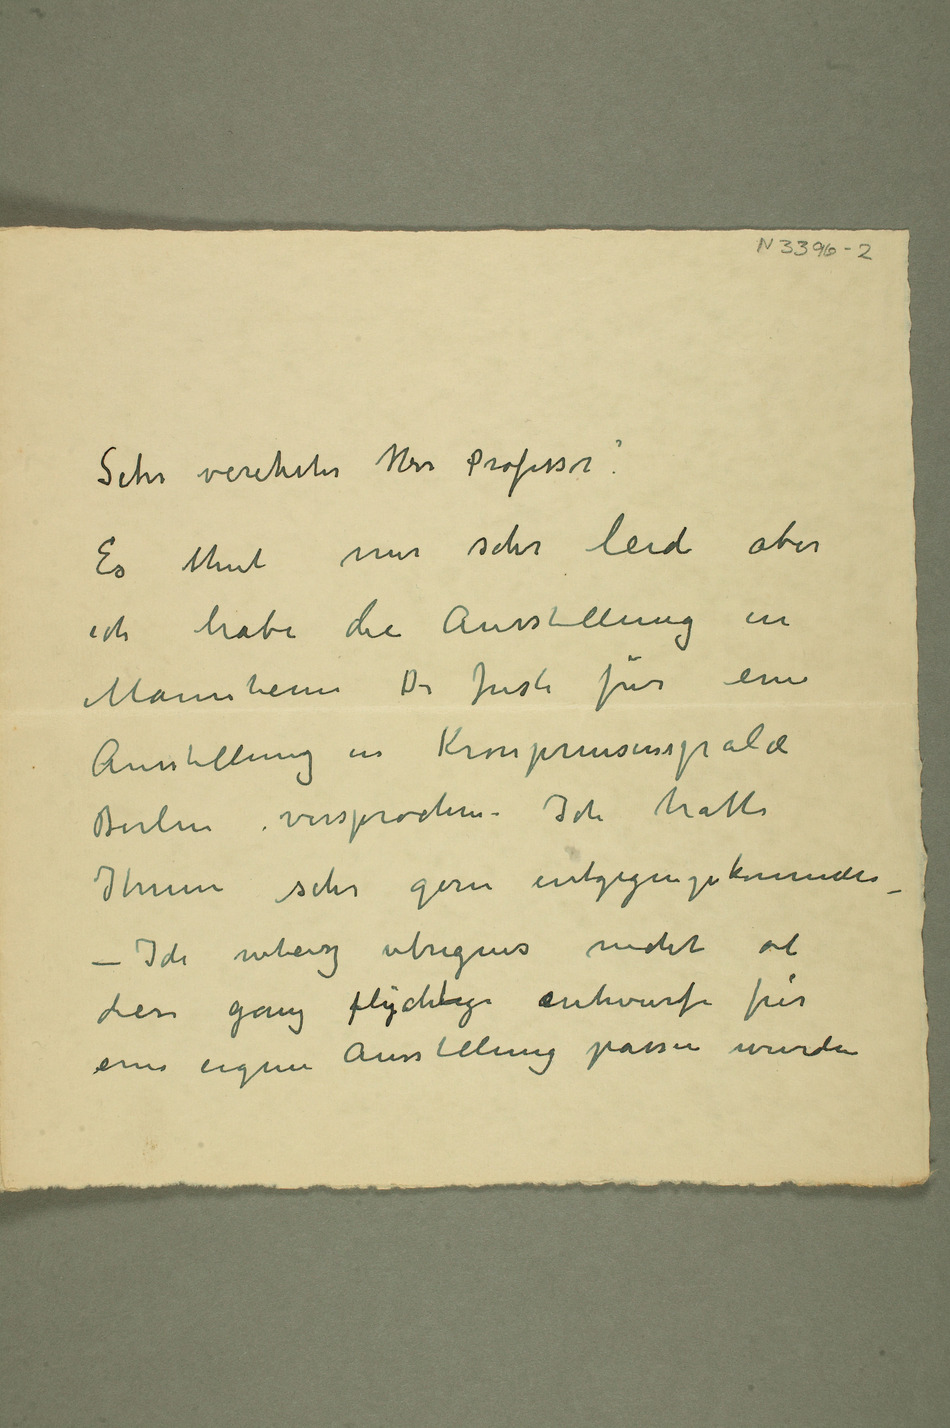 N 3396-2
Sehr verehrter Herr Professor!
Es thut mir sehr leid aber
ich habe die Ausstellung in
Mannheim Dr Justi für eine
Ausstellung in Kronprinsenspalæ
Berlin versprochen – Ich hatte
Ihnen sehr gern entgegengekommen –
– Ich weiss übrigens nicht ob
diese ganz flüchtige entwürfe für
eine eigene Ausstellung passen würden